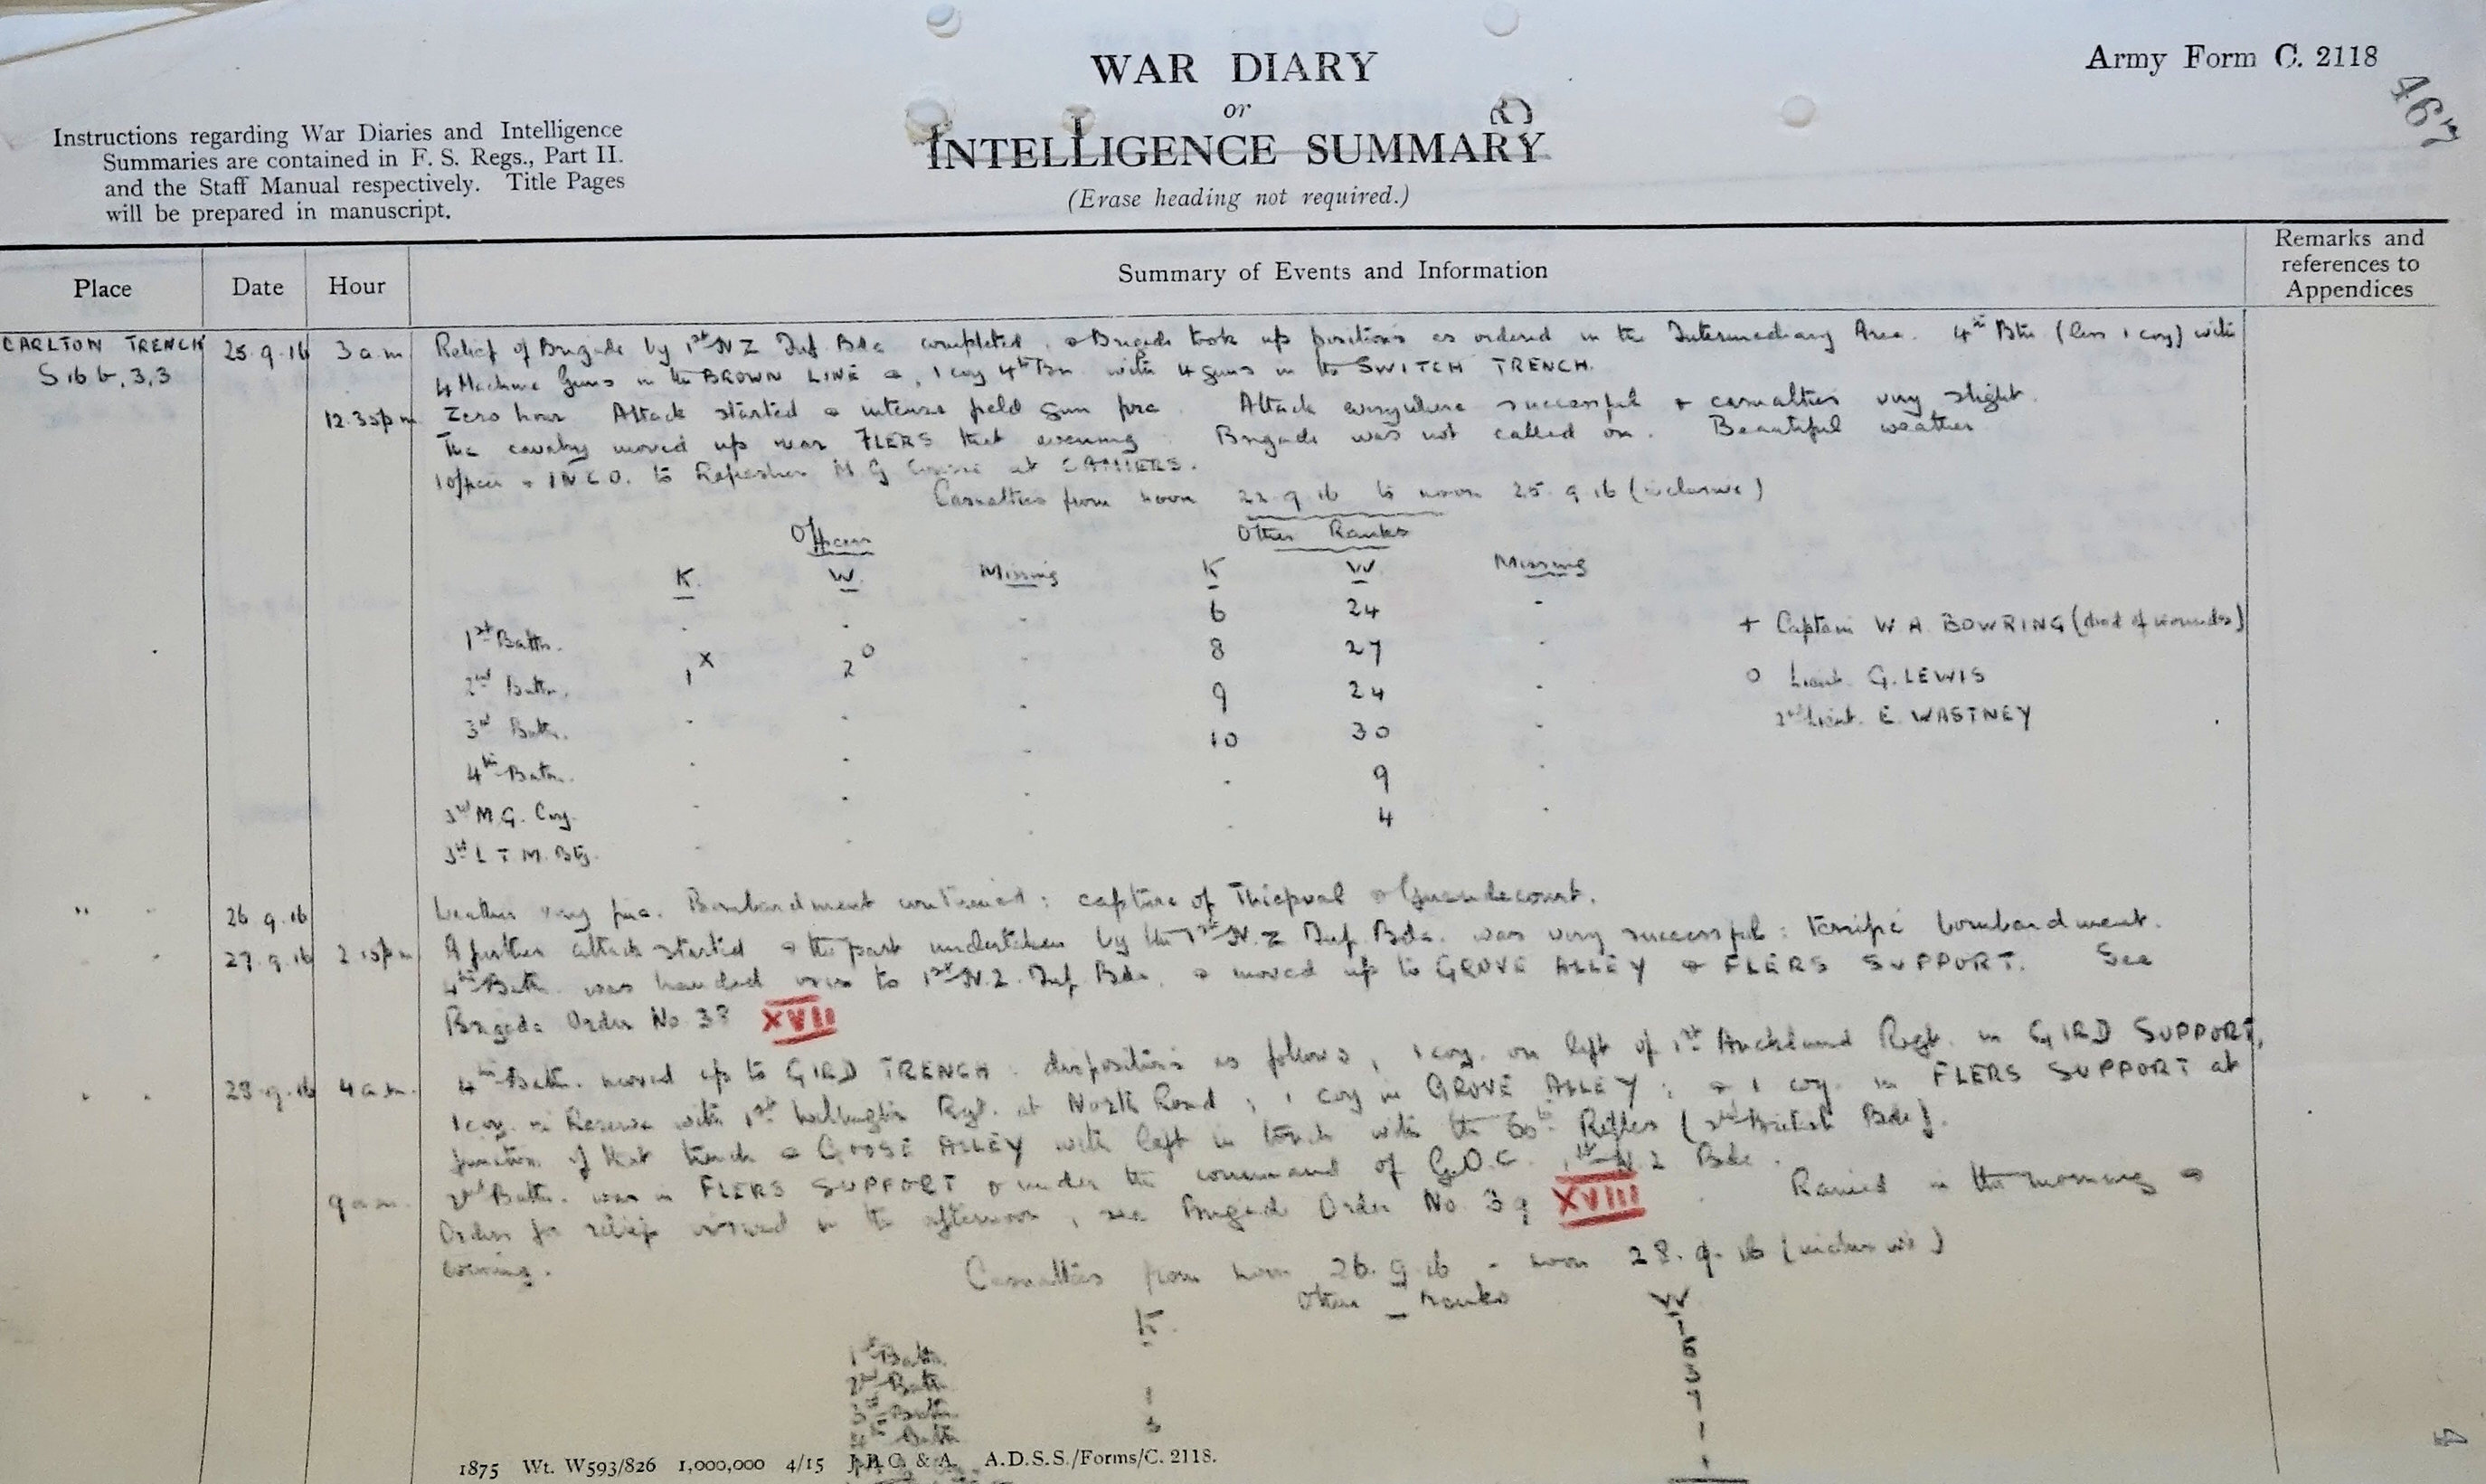 WAR DIARY
or
INTELLIGENCE SUMMARY
(Erase heading not required.)
Army Form C. 2118
467
Instructions regarding War Diaries and Intelligence
Summaries are contained in F. S. Regs., Part II.
and the Staff Manual respectively. Title Pages
will be prepared in manuscript.
Place Date Hour Summary of Events and Information Remarks and references to Appendices
CARLTON TRENCH 25.9.16 3 a.m Relief of Brigade by 1st N Z Inf. Bde completed, & Brigade took up positions as ordered in the Intermediary Area. 4th Btn. (less 1 coy) with
S 16 b, 3,3 4 Machine Guns in the BROWN LINE &, 1 coy 4th Bn. with 4 guns in the SWITCH TRENCH.
12.35pm Zero hour Attack started & intense field gun fire. Attack everywhere successful & casualties very slight.
The cavalry moved up near FLERS that evening. Brigade was not called on. Beautiful weather
1 Officer & 1 N.C.O. to Refresher M.G Course at CAMIERS.
Casualties from noon 22.9.16 to noon 25.9.16 (inclusive)
Officers Other Ranks
K. W. Missing K W. Missing
1st Battn. - - - 6 24 -
2nd Battn. 1 x 2 o - 8 27 -
3rd Battn. - - - 9 24 -
4th Battn. - - - 10 30 -
3rd M.G. Coy. - - - - 9 -
3rd L T M. Bty. - - - - 4 -
+ Captain W A BOWRING (died of wounds)
o Lieut. G. LEWIS
2nd Lieut. E. WASTNEY
" 26.9.16 Weather very fine. Bombardment continued: capture of Thiepval & Gueudecourt.
27.9.16 2.15pm A further attack started & the part undertaken by the 1st N.Z Inf. Bde. was very successful: terrific bombardment.
4th Battn. was handed over to 1st N.Z. Inf. Bde. & moved up to GROVE ALLEY & FLERS SUPPORT. See
Brigade Order No 38 XVII
28.9.16 4 a.m. 4th Battn. moved up to GIRD TRENCH. dispositions as follows, 1 coy. on left of 1st Auckland Regt. in GIRD SUPPORT,
1 coy. in Reserve with 1st Wellington Regt. at North Road; 1 coy in GROVE ALLEY; & 1 coy. in FLERS SUPPORT at
junction of that trench & GOOSE ALLEY with left in touch with the 60th Rifles (2nd British Bde).
9 a.m. 2nd Battn. was in FLERS SUPPORT & under the command of G.O.C. 1st N.Z Bde.
Orders for relief issued in the afternoon, see Brigade Order No. 39 XVIII. Rained in the morning &
evening.
Casualties from noon 26.9.16 - noon 28.9.16 (inclusive)
Other Ranks
K. W
1st Battn.
2nd Battn.
3rd Battn.
4th Battn
1875 Wt. W593/826 1,000,000 4/15 J.B.C. & A. A.D.S.S./Forms/C. 2118.